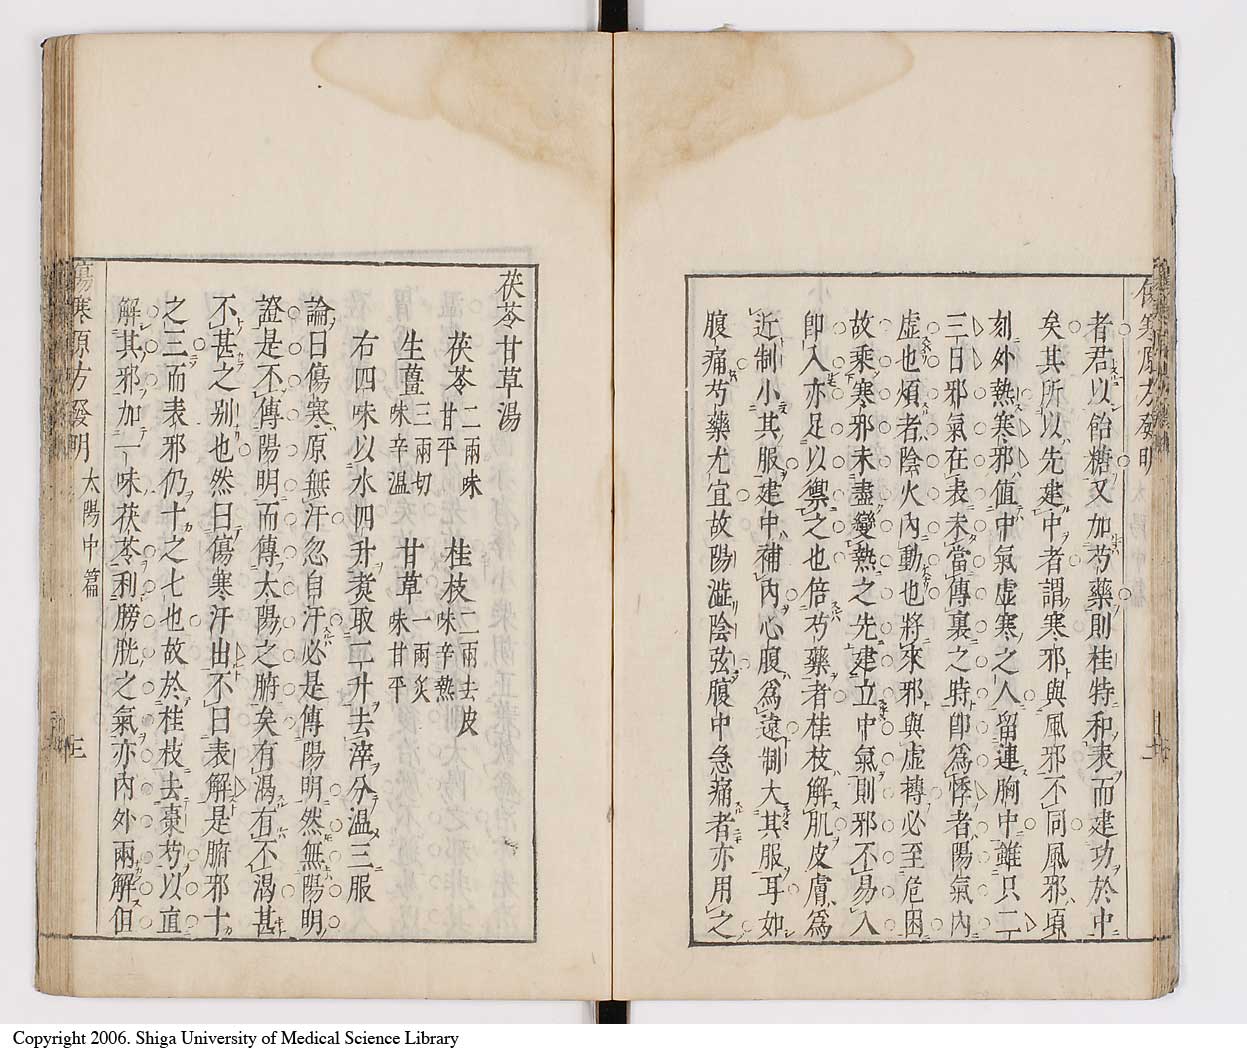 者君以飴糖又加芍藥則桂特和表而建功於中
矣其所以先建中者謂寒邪與風邪不同風邪頃
刻外熱寒邪値中氣虛寒之人留連胸中雖只二
三日邪氣在表未當傳裏之時卽爲悸者陽氣內
虛也煩者陰火內動也將來邪與虛摶必至危困
故乘寒邪未盡變熱之先建立中氣則邪不易入
卽入亦足以禦之也倍芍藥者桂枝解肌皮膚爲
近制小其服建中補內心腹爲遠制大其服耳如
腹痛芍藥尤宜故陽澁陰弦腹中急痛者亦用之
茯苓甘草湯
茯苓二兩味甘平　桂枝二兩去皮味辛熱
生薑三兩切味辛溫　甘草一兩炙味甘平
右四味以水四升煑取二升去滓分溫三服
論曰傷寒原無汗忽自汗必是傳陽明然無陽明
證是不傳陽明而傳太陽之腑矣有渴有不渴甚
不甚之别也然曰傷寒汗出不曰表解是腑邪十
之三而表邪仍十之七也故於桂枝去棗芍以直
解其邪加一味茯苓利膀胱之氣亦內外兩解但
傷寒原方發明　太陽中篇　三
Copyright 2006. Shiga University of Medical Science Library